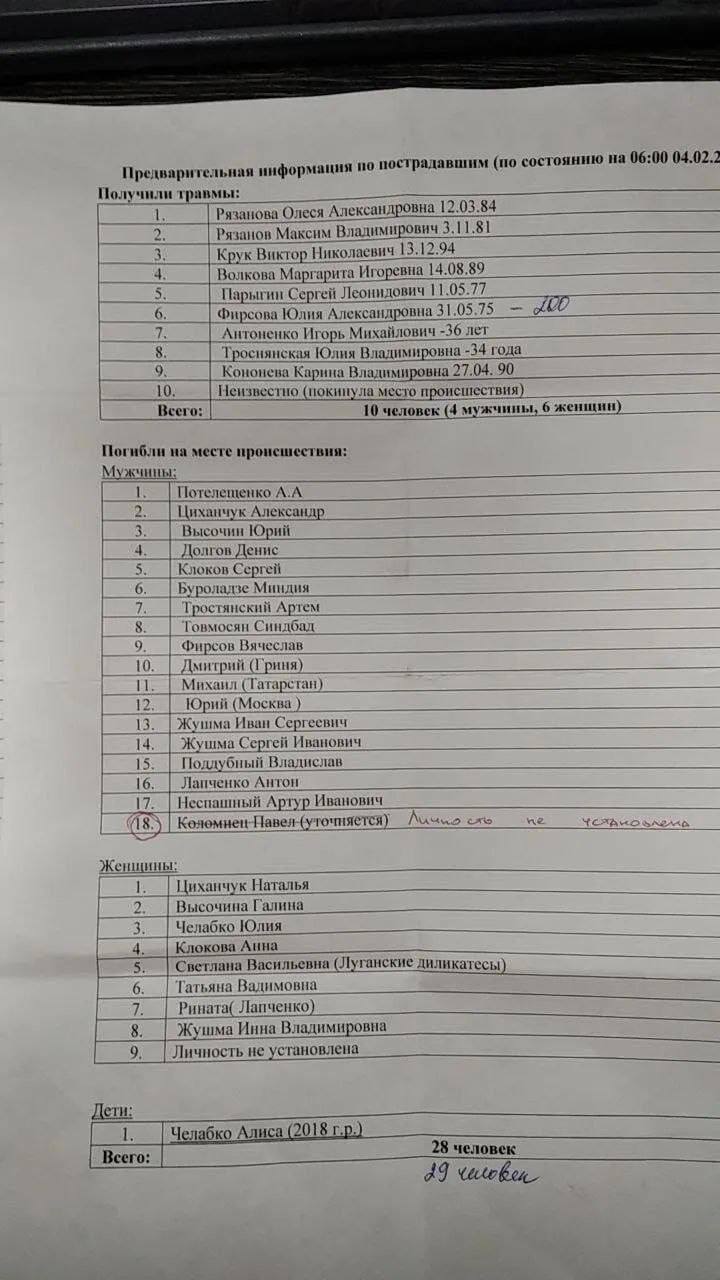 Предварительная информация по пострадавшим (по состоянию на 06:00 04.02.2
Получили травмы:
1. Рязанова Олеся Александровна 12.03.84
2. Рязанов Максим Владимирович 3.11.81
3. Крук Виктор Николаевич 13.12.94
4. Волкова Маргарита Игоревна 14.08.89
5. Парыгин Сергей Леонидович 11.05.77
6. Фирсова Юлия Александровна 31.05.75 – 200
7. Антоненко Игорь Михайлович -36 лет
8. Троснянская Юлия Владимировна -34 года
9. Кононева Карина Владимировна 27.04. 90
10. Неизвестно (покинула место происшествия)
Всего: 10 человек (4 мужчины, 6 женщин)
Погибли на месте происшествия:
Мужчины:
1. Потелещенко А.А
2. Циханчук Александр
3. Высочин Юрий
4. Долгов Денис
5. Клоков Сергей
6. Буроладзе Миндия
7. Тростянский Артем
8. Товмосян Синдбад
9. Фирсов Вячеслав
10. Дмитрий (Гриня)
11. Михаил (Татарстан)
12. Юрий (Москва )
13. Жушма Иван Сергеевич
14. Жушма Сергей Иванович
15. Поддубный Владислав
16. Лапченко Антон
17. Неспашный Артур Иванович
18. Коломиец Павел (уточняется) Личность не установлена
Женщины:
1. Циханчук Наталья
2. Высочина Галина
3. Челабко Юлия
4. Клокова Анна
5. Светлана Васильевна (Луганские диликатесы)
6. Татьяна Вадимовна
7. Рината( Лапченко)
8. Жушма Инна Владимировна
9. Личность не установлена
Дети:
1. Челабко Алиса (2018 г.р.)
Всего: 28 человек
29 человек